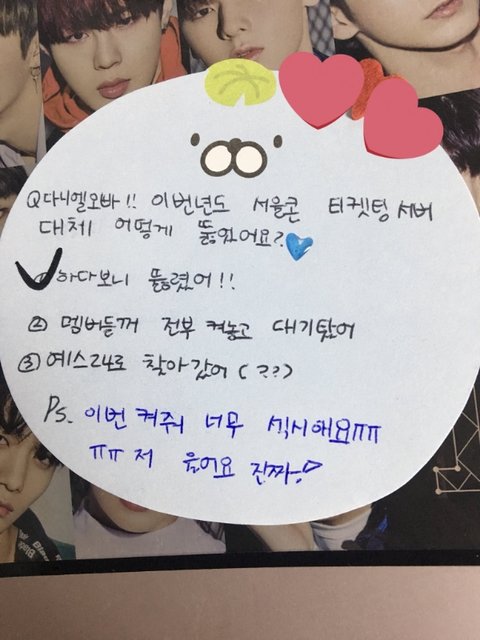 Q다니엘오빠!! 이번년도 서울콘 티켓팅 서버
대체 어떻게 뚫었어요?
하다보니 뚫렸어!!
② 멤버들꺼 전부 켜놓고 대기탔어
③ 예스24로 찾아갔어 (??)
Ps. 이번 켜줘 너무 섹시해요ㅠㅠ
ㅠㅠ 저 울어요 진짜!